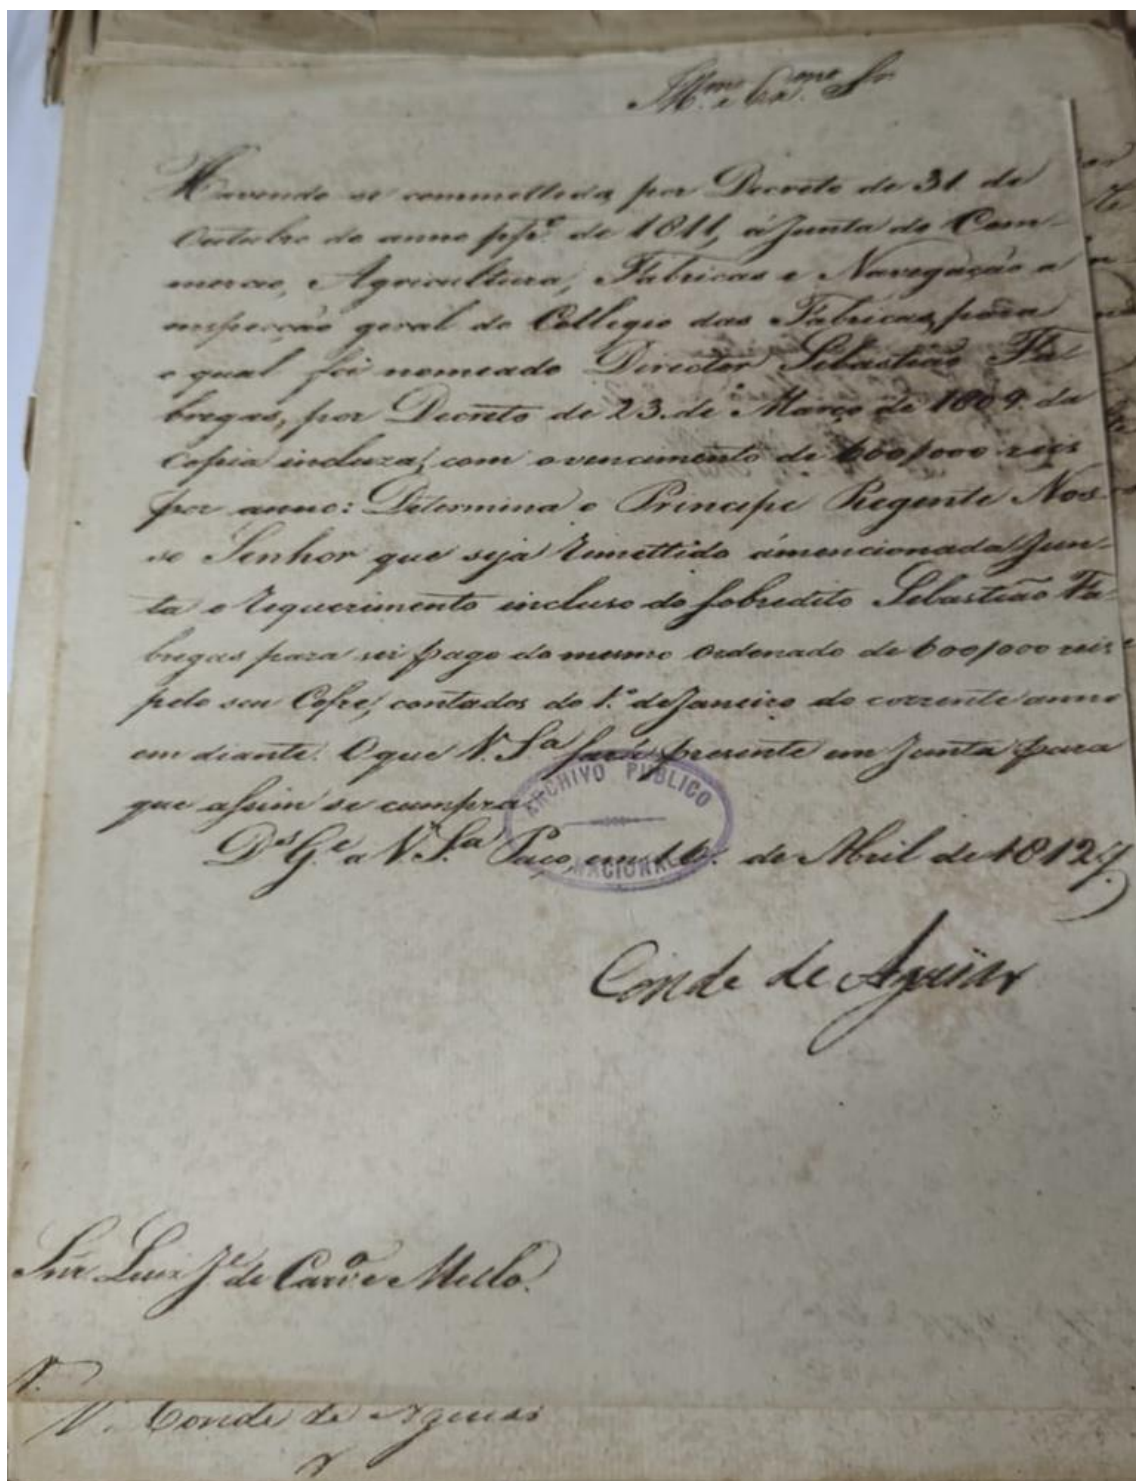 Ill.mo e Ex.mo Sr.
Havendo-se commettido, por Decreto de 31 de
Outubro do anno p.p.º de 1811, á Junta do Com-
mercio, Agricultura, Fabricas e Navegação a
inspecção geral do Collegio das Fabricas, para
o qual foi nomeado Director Sebastião Fa-
bregas, por Decreto de 23 de Março de 1809 da
Copia incluza, com o vencimento de 600/000 reis
por anno: Determina o Principe Regente Nos-
so Senhor que seja remettido á mencionada Jun-
ta o requerimento incluso do sobredito Sebastião Fa-
bregas para ser pago do mesmo Ordenado de 600/000 reis
pelo seu Cofre, contados do 1.º de Janeiro do corrente anno
em diante. O que V. S.a fará presente em Junta para
que assim se cumpra.
ARCHIVO PUBLICO
NACIONAL
D.s G.e a V. S.a Paço, em 16. de Abril de 1812
Conde de Aguiar
Snr. Luiz J.e de Carv.o e Mello.
V. Conde de Aguiar